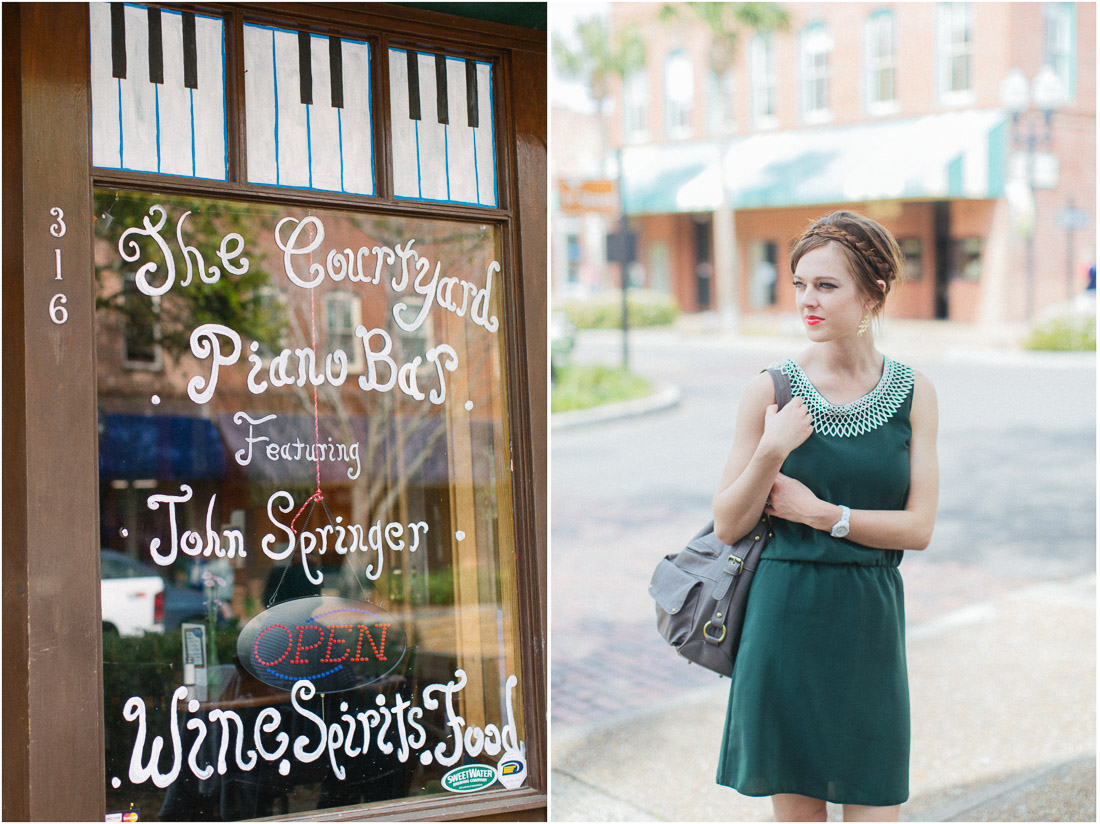 316
The Courtyard
. Piano Bar .
Featuring
. John Springer .
OPEN
. Wine. Spirits. Food
SWEETWATER
BREWING COMPANY